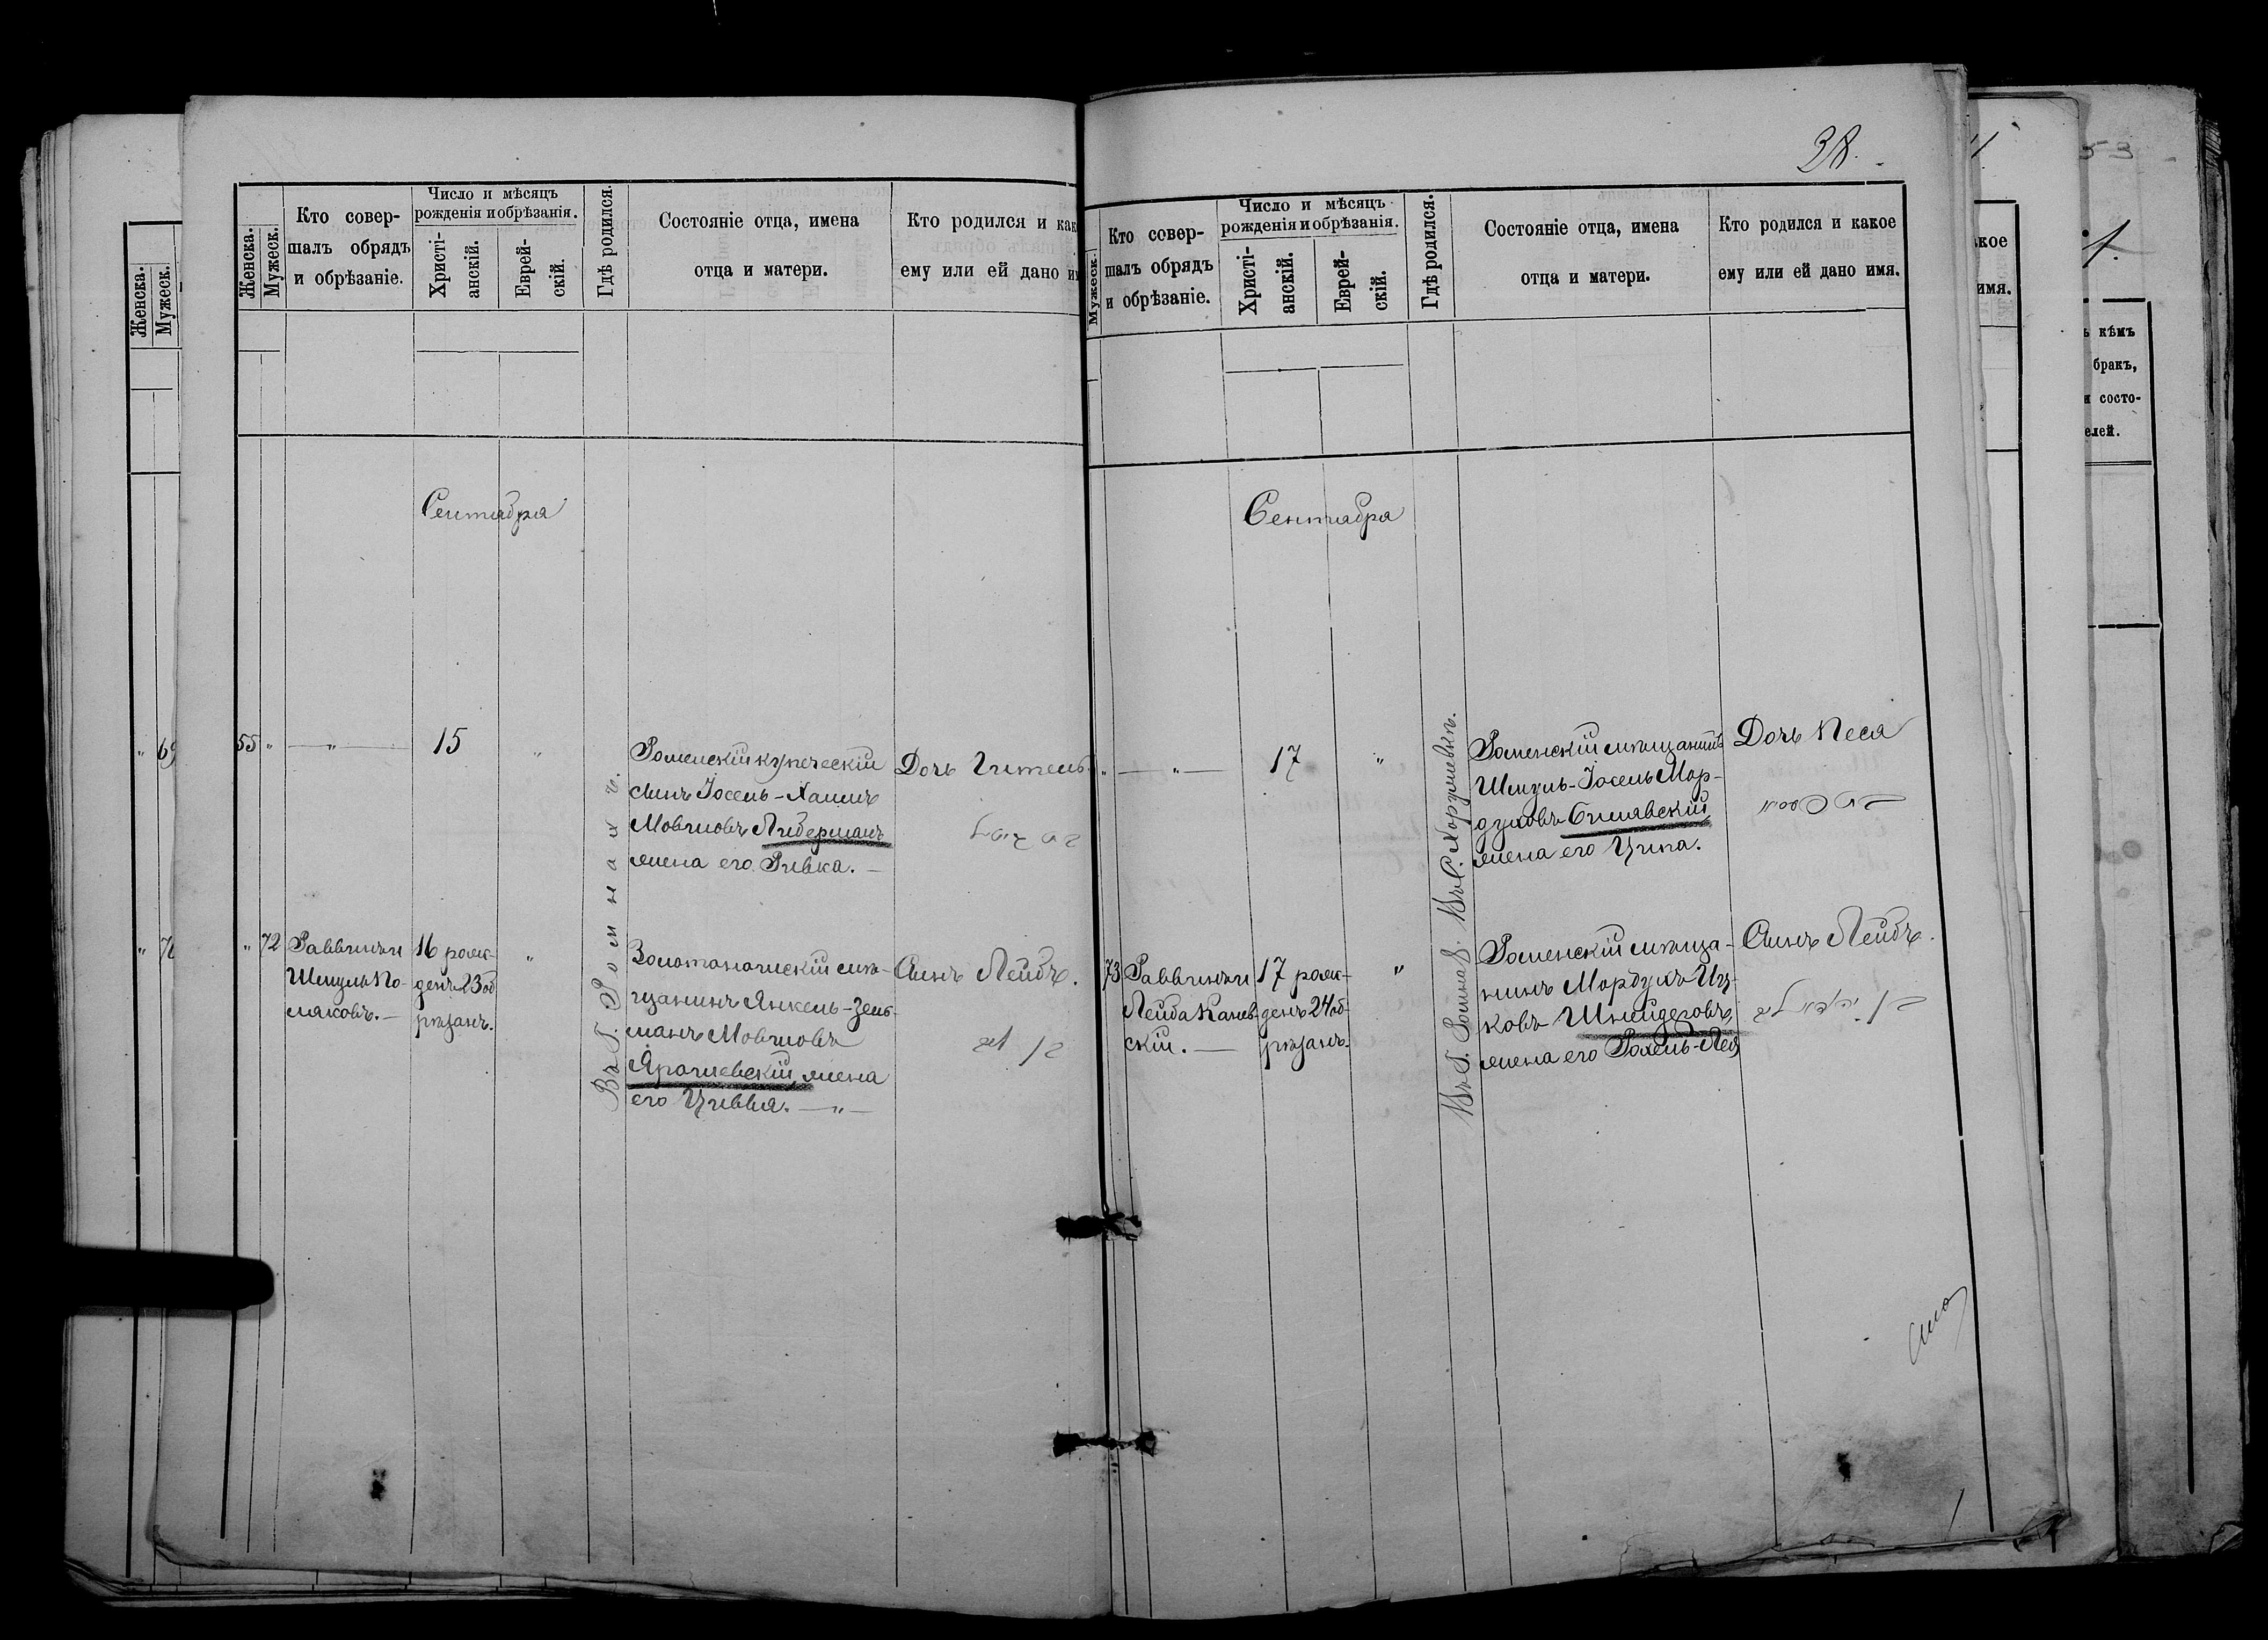 38.
Женска.
Мужеск.
Женска.
Мужеск.
Кто совер-
шалъ обрядъ
и обрѣзаніе.
Число и мѣсяцъ
рожденія и обрѣзанія.
Христі-
анскій.
Еврей-
скій.
Гдѣ родился.
Состояніе отца, имена
отца и матери.
Кто родился и как
ему или ей дано и
Сентября
69
55 " — " — 15 "
Роменскій купеческій
сынъ Іосель-Хаимъ
Мовшовъ Либерманъ
жена его Ривка. —
Дочь Гитель
Въ Г. Ромнахъ.
" 72
Раввинъ
Шмуль По-
ляковъ. —
16 рож-
денъ 23 об
рѣзанъ.
"
Золотоношскій мѣ-
щанинъ Янкель-Зель-
манъ Мовшовъ
Ярошевскій, жена
его Цивья. — " —
Сынъ Лейбъ.
Мужеск.
Кто совер-
шалъ обрядъ
и обрѣзаніе.
Число и мѣсяцъ
рожденія и обрѣзанія.
Христі-
анскій.
Еврей-
скій.
Гдѣ родился.
Состояніе отца, имена
отца и матери.
Кто родился и какое
ему или ей дано имя.
Сентября
" — " — 17 "
Роменскій мѣщанинъ
Шмуль-Іосель Мор-
духовъ Сминавскій
жена его Ципа.
Дочь Песя
73
Раввинъ
Лейба Канев-
скій. —
17 рож-
денъ 24 об-
рѣзанъ.
"
Въ Г. Ромнах.
Роменскій мѣща-
нинъ Мордухъ Иц-
ковъ Шнейдеровъ,
жена его Рохель-Лея
Сынъ Лейбъ.
кое
имя.
53
1.
кѣмъ
бракъ,
состо-
елей.